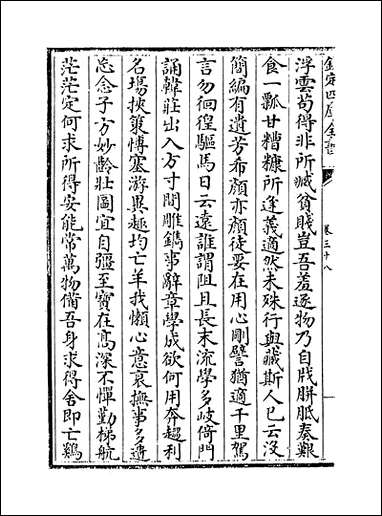 欽定四庫全書
卷三十八
浮雲苟得非所臧貧賤豈吾羞逐物乃自戕胼胝奏艱
食一瓢甘糟糠所逢義適然未殊行與藏斯人已云沒
簡編有遺芳希顔亦顔徒要在用心剛譬猶適千里駕
言勿徊徨驅馬日云遠誰謂阻且長末流學多岐倚門
誦韓莊出入方寸間雕鐫事辭章學成欲何用奔趨利
名場挾䇿博塞游異趣均亡羊我懶心意衰撫事多遺
忘念子方妙齡壯圖宜自彊至寶在高深不憚勤梯航
茫茫定何求所得安能常萬物備吾身求得舍即亡鷄